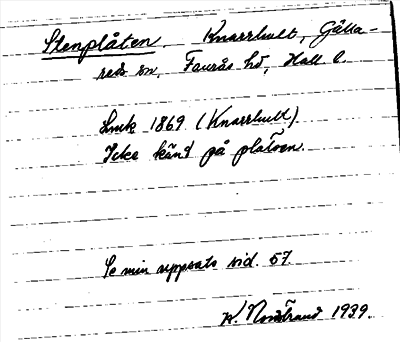 Stenplåten. Knarrhult, Gälla-
reds sn, Faurås hd, Hall l.
Smk 1869 (Knarrhult)
Icke känd på platsen.
Se min uppsats sid. 57.
K. Nordstrand 1939.